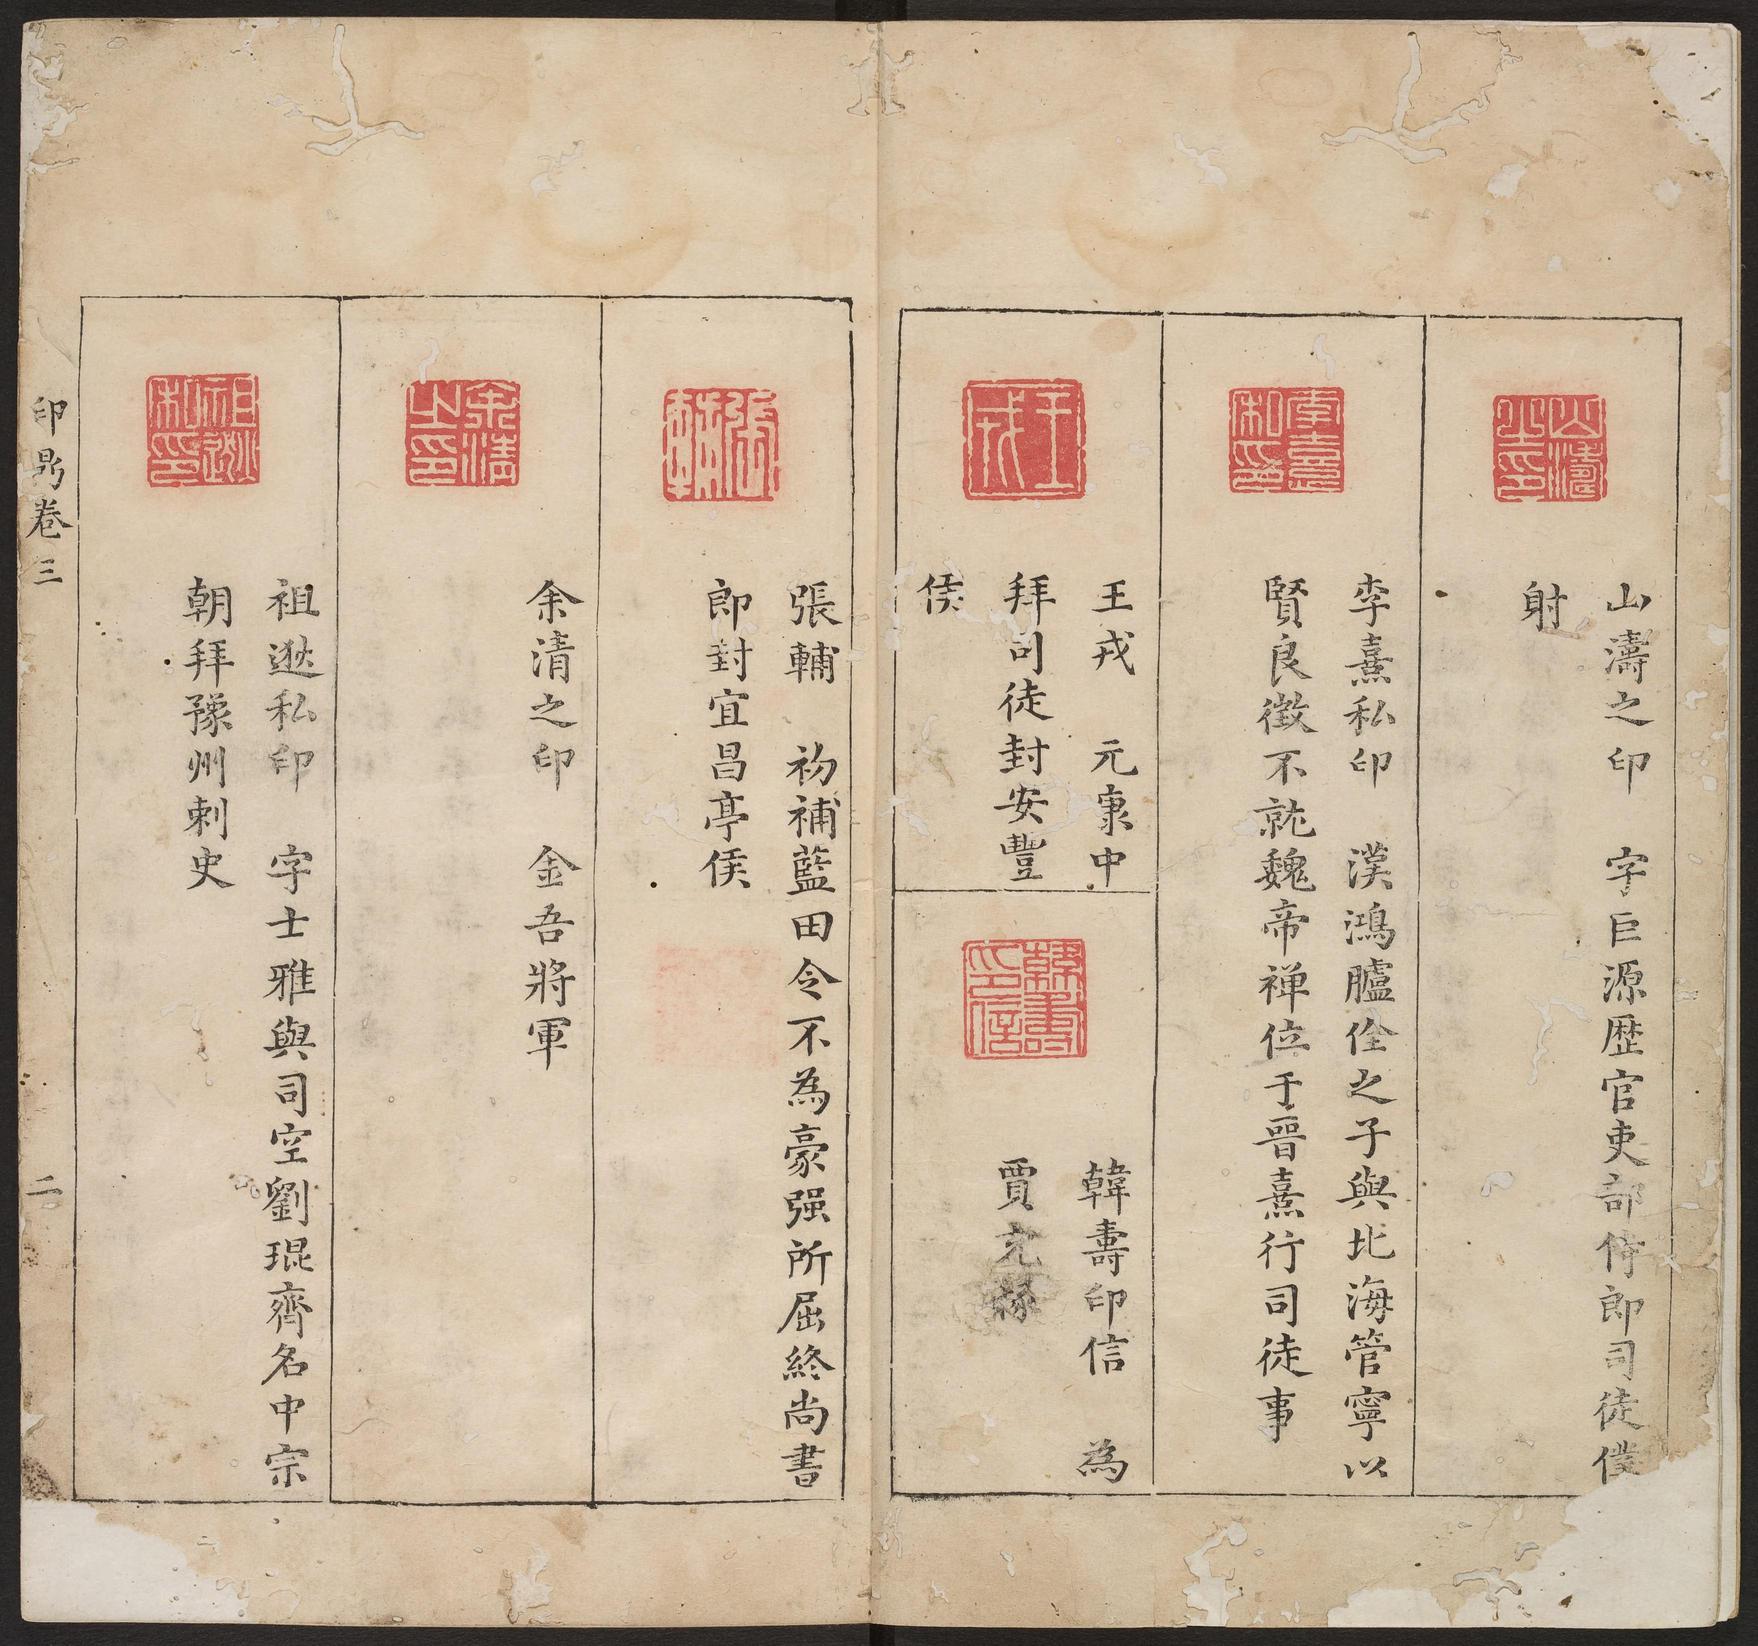 山濤之印
山濤之印　字巨源歴官吏部侍郎司徒僕
射
李熹私印
李熹私印　漢鴻臚佺之子與北海管寧以
賢良徵不就魏帝禅位于晉熹行司徒事
王戎
王戎　元康中
拜司徒封安豐
侯
韓壽印信
韓壽印信　為
賈充掾
張輔
張輔　初補藍田令不為豪强所屈終尚書
郎封宜昌亭侯
余清之印
余清之印　金吾將軍
祖逖私印
祖逖私印　字士雅與司空劉琨齊名中宗
朝拜豫州刺史
印鼎卷三
二